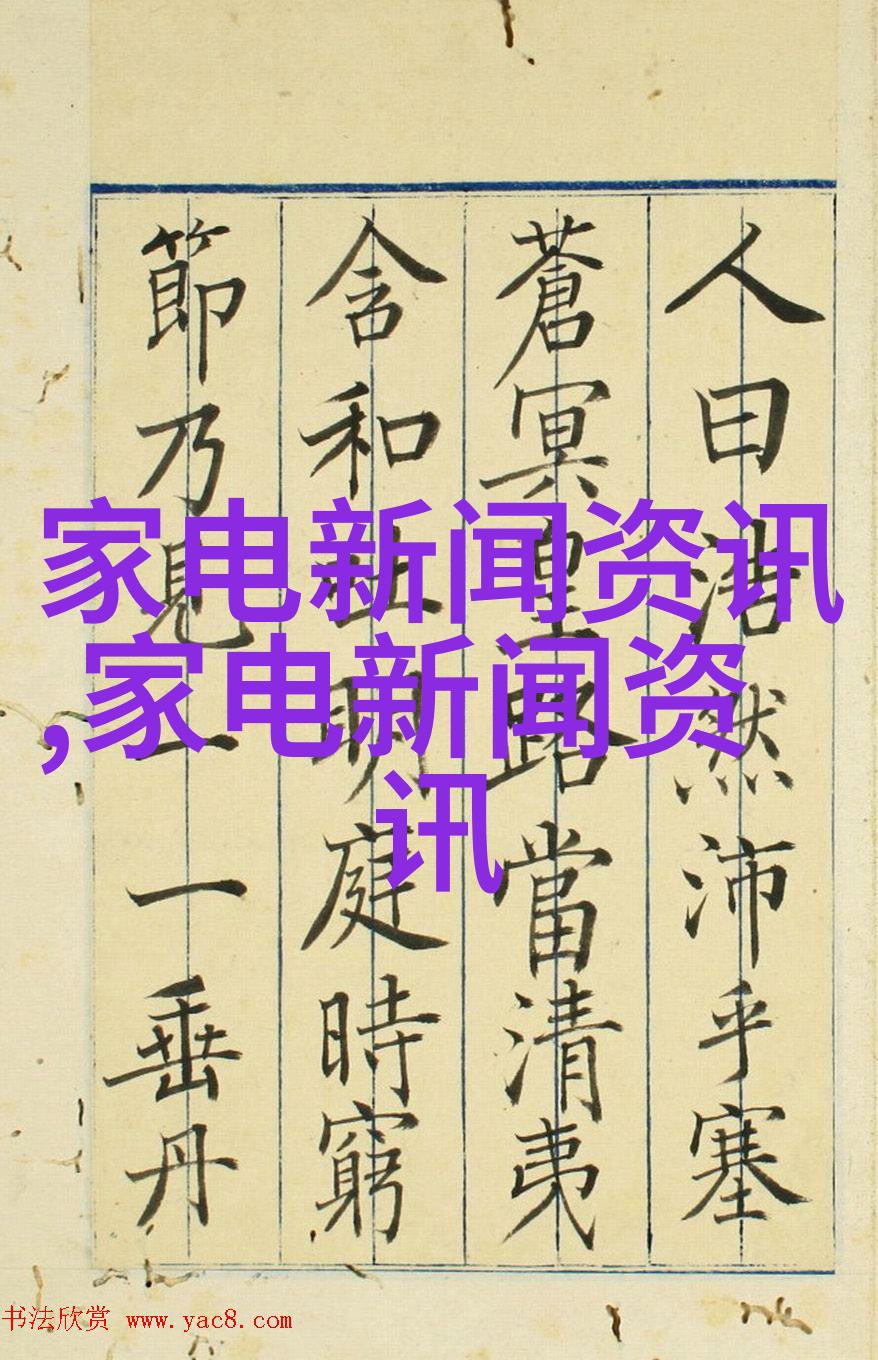 人曰浩然沛乎塞
蒼冥皇路當清夷
含和吐明庭時窮
節乃見一一垂丹
家电新闻资讯
,家电新闻资
讯
书法欣赏 www.yac8.com